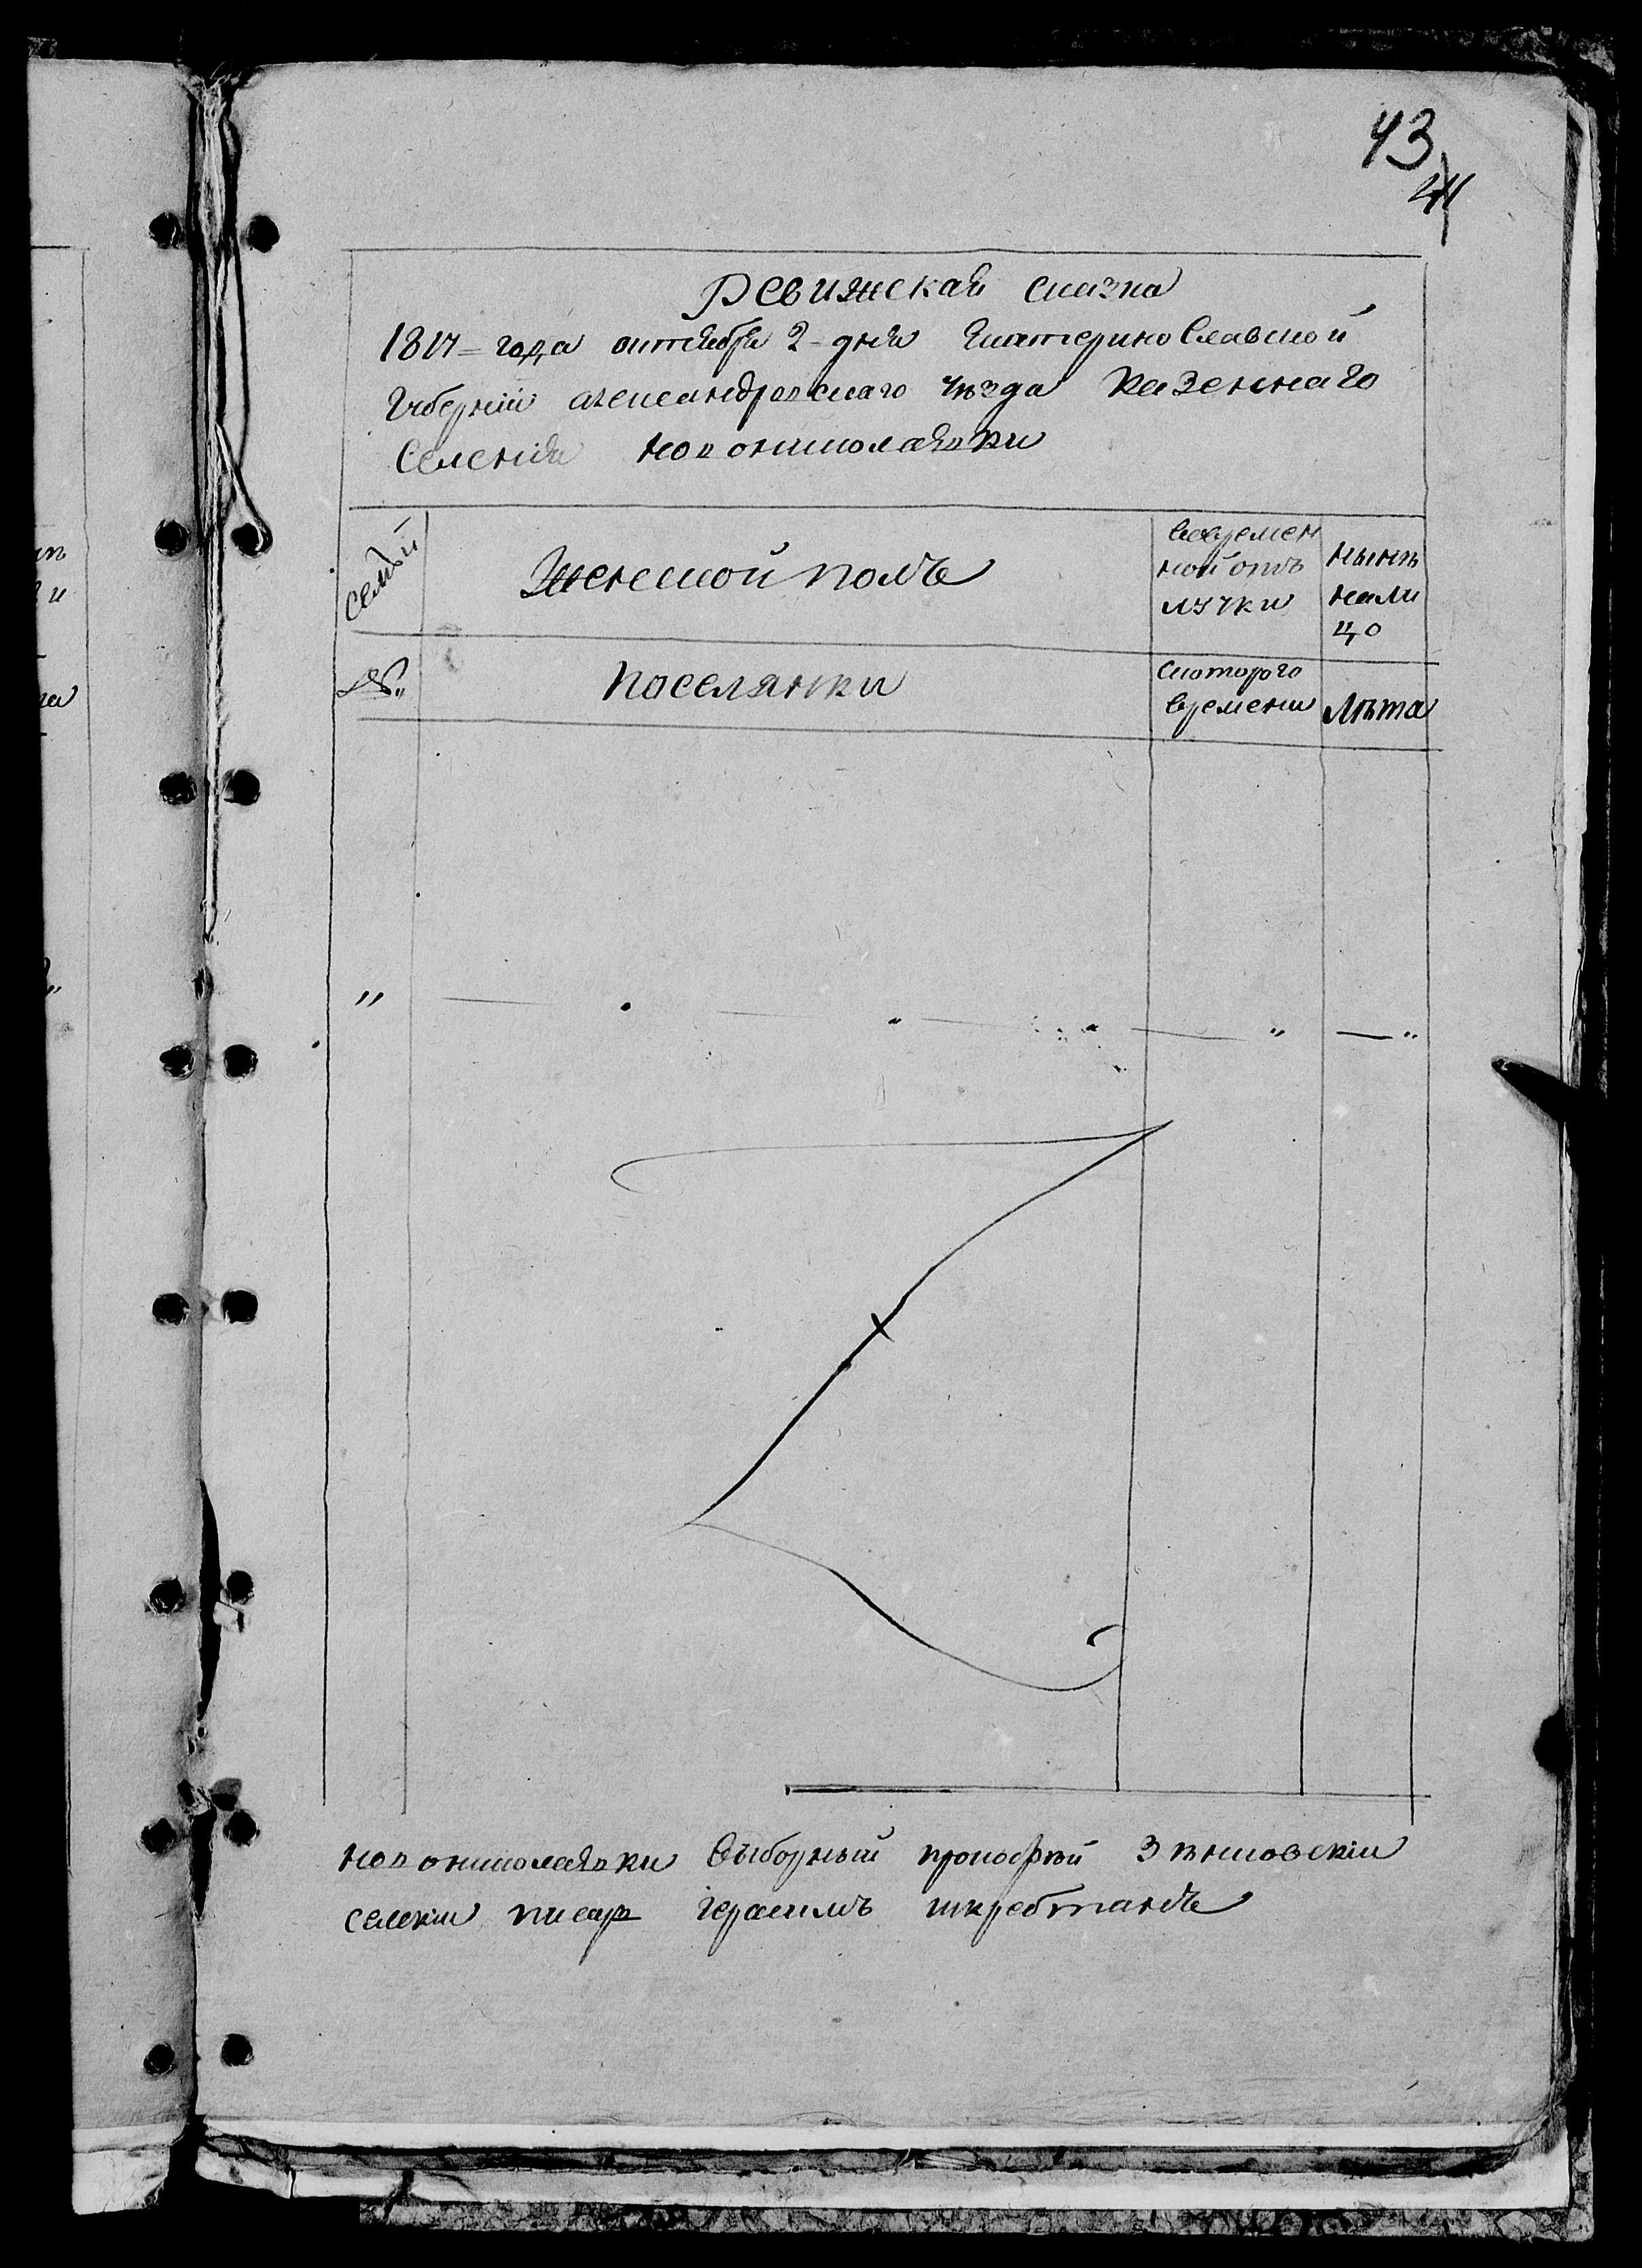 43
44
Ревижская сказка
1817= года октября 2-дня Екатеринославской
Губерніи александровскаго уѣзда казеннаго
Селенія новониколаявки
семьи
Женской полъ
вовремен
ной отъ
лучки
нынѣ
нали
цо
№
поселянки
скоторого
времени
лѣта
новониколаявки выборный прокофѣй Зѣнковскіи
селскіи писар герасимъ шкребтакъ